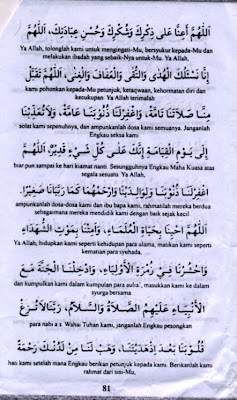 اَللّٰهُمَّ اَعِنَّا عَلَى ذِكْرِكَ وَشُكْرِكَ وَحُسْنِ عِبَادَتِكَ، اَللّٰهُمَّ
Ya Allah, tolonglah kami untuk mengingati-Mu, bersyukur kepada-Mu dan
melakukan ibadah yang sebaik-Nya untuk-Mu. Ya Allah,
اِنَّا نَسْئَلُكَ الْهُدَى وَالتُّقَى وَالْعَفَافَ وَالْغِنَى، اَللّٰهُمَّ تَقَبَّلْ
kami pohonkan kepada-Mu petunjuk, ketaqwaan, kehormatan diri dan
kecukupan Ya Allah terimalah
مِنَّا صَلَاتَنَا تَامَّةً، وَاغْفِرْلَنَا ذُنُوْبَنَا عَامَّةً، وَلَاتُعَذِّبْنَا
solat kami sepenuhnya, dan ampunkanlah dosa kami semuanya. Janganlah
Engkau seksa kami
اِلَى يَوْمِ الْقِيَامَةِ اِنَّكَ عَلَى كُلِّ شَيْءٍ قَدِيْرٌ، اَللّٰهُمَّ
biar pun sampai ke hari kiamat nanti. Sesungguhnya Engkau Maha Kuasa atas
segala sesuatu. Ya Allah,
اغْفِرْلَنَا ذُنُوْبَنَا وَلِوَالِدِيْنَا وَارْحَمْهُمَا كَمَا رَبَّيَانَا صَغِيْرًا،
ampunkanlah dosa-dosa kami dan ibu bapa kami, rahmatilah mereka berdua
sebagaimana mereka mendidik kami dengan baik sejak kecil
اَللّٰهُمَّ احْيِنَا بِحَيَاةِ الْعُلَمَاءِ، وَاَمِتْنَا بِمَوْتِ الشُّهَدَاءِ
Ya Allah, hidupkan kami seperti kehidupan para ulama, matikan kami seperti
kematian para syuhada,
وَاحْشُرْنَا فِيْ زُمْرَةِ الْاَوْلِيَاءِ، وَادْخِلْنَا الْجَنَّةَ مَعَ
dan kumpulkan kami dalam kumpulan para aulia', masukkan kami ke dalam
syurga bersama
الْاَنْبِيَاءِ عَلَيْهِمُ الصَّلَاةُ وَالسَّلَامُ، رَبَّنَالَاتُزِغْ
para nabi a.s. Wahai Tuhan kami, janganlah Engkau pesongkan
قُلُوْبَنَا بَعْدَ اِذْهَدَيْتَنَا، وَهَبْ لَنَا مِنْ لَدُنْكَ رَحْمَةً
hati kami setelah mana Engkau berikan petunjuk kepada kami. Berikanlah kami
rahmat dari sisi-Mu,
81